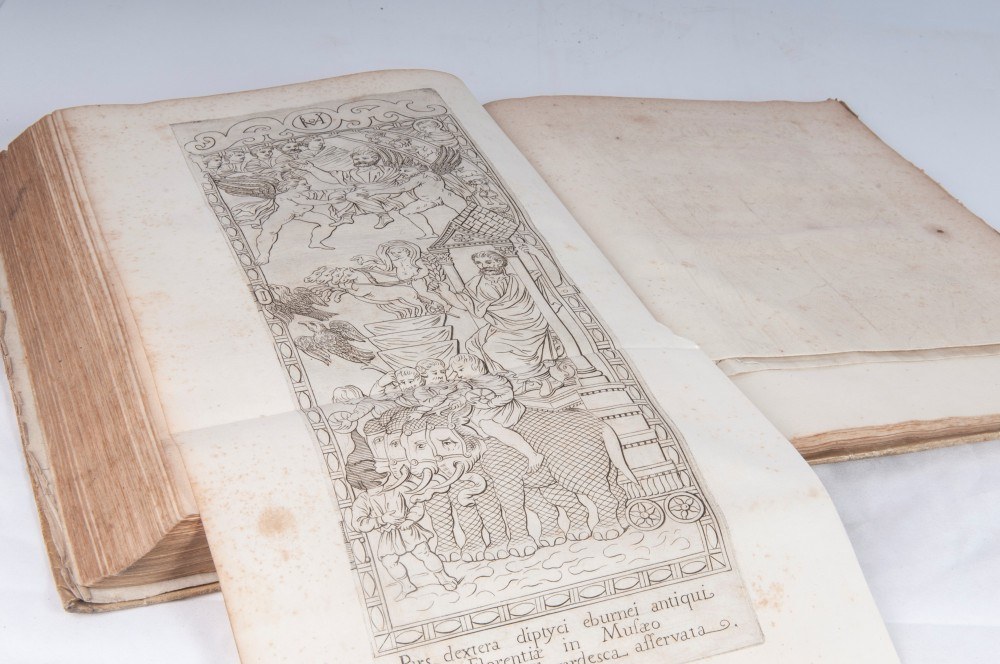 Pars dextera diptyci eburnei antiqui
Florentiæ in Musæo
ardesca asservata.